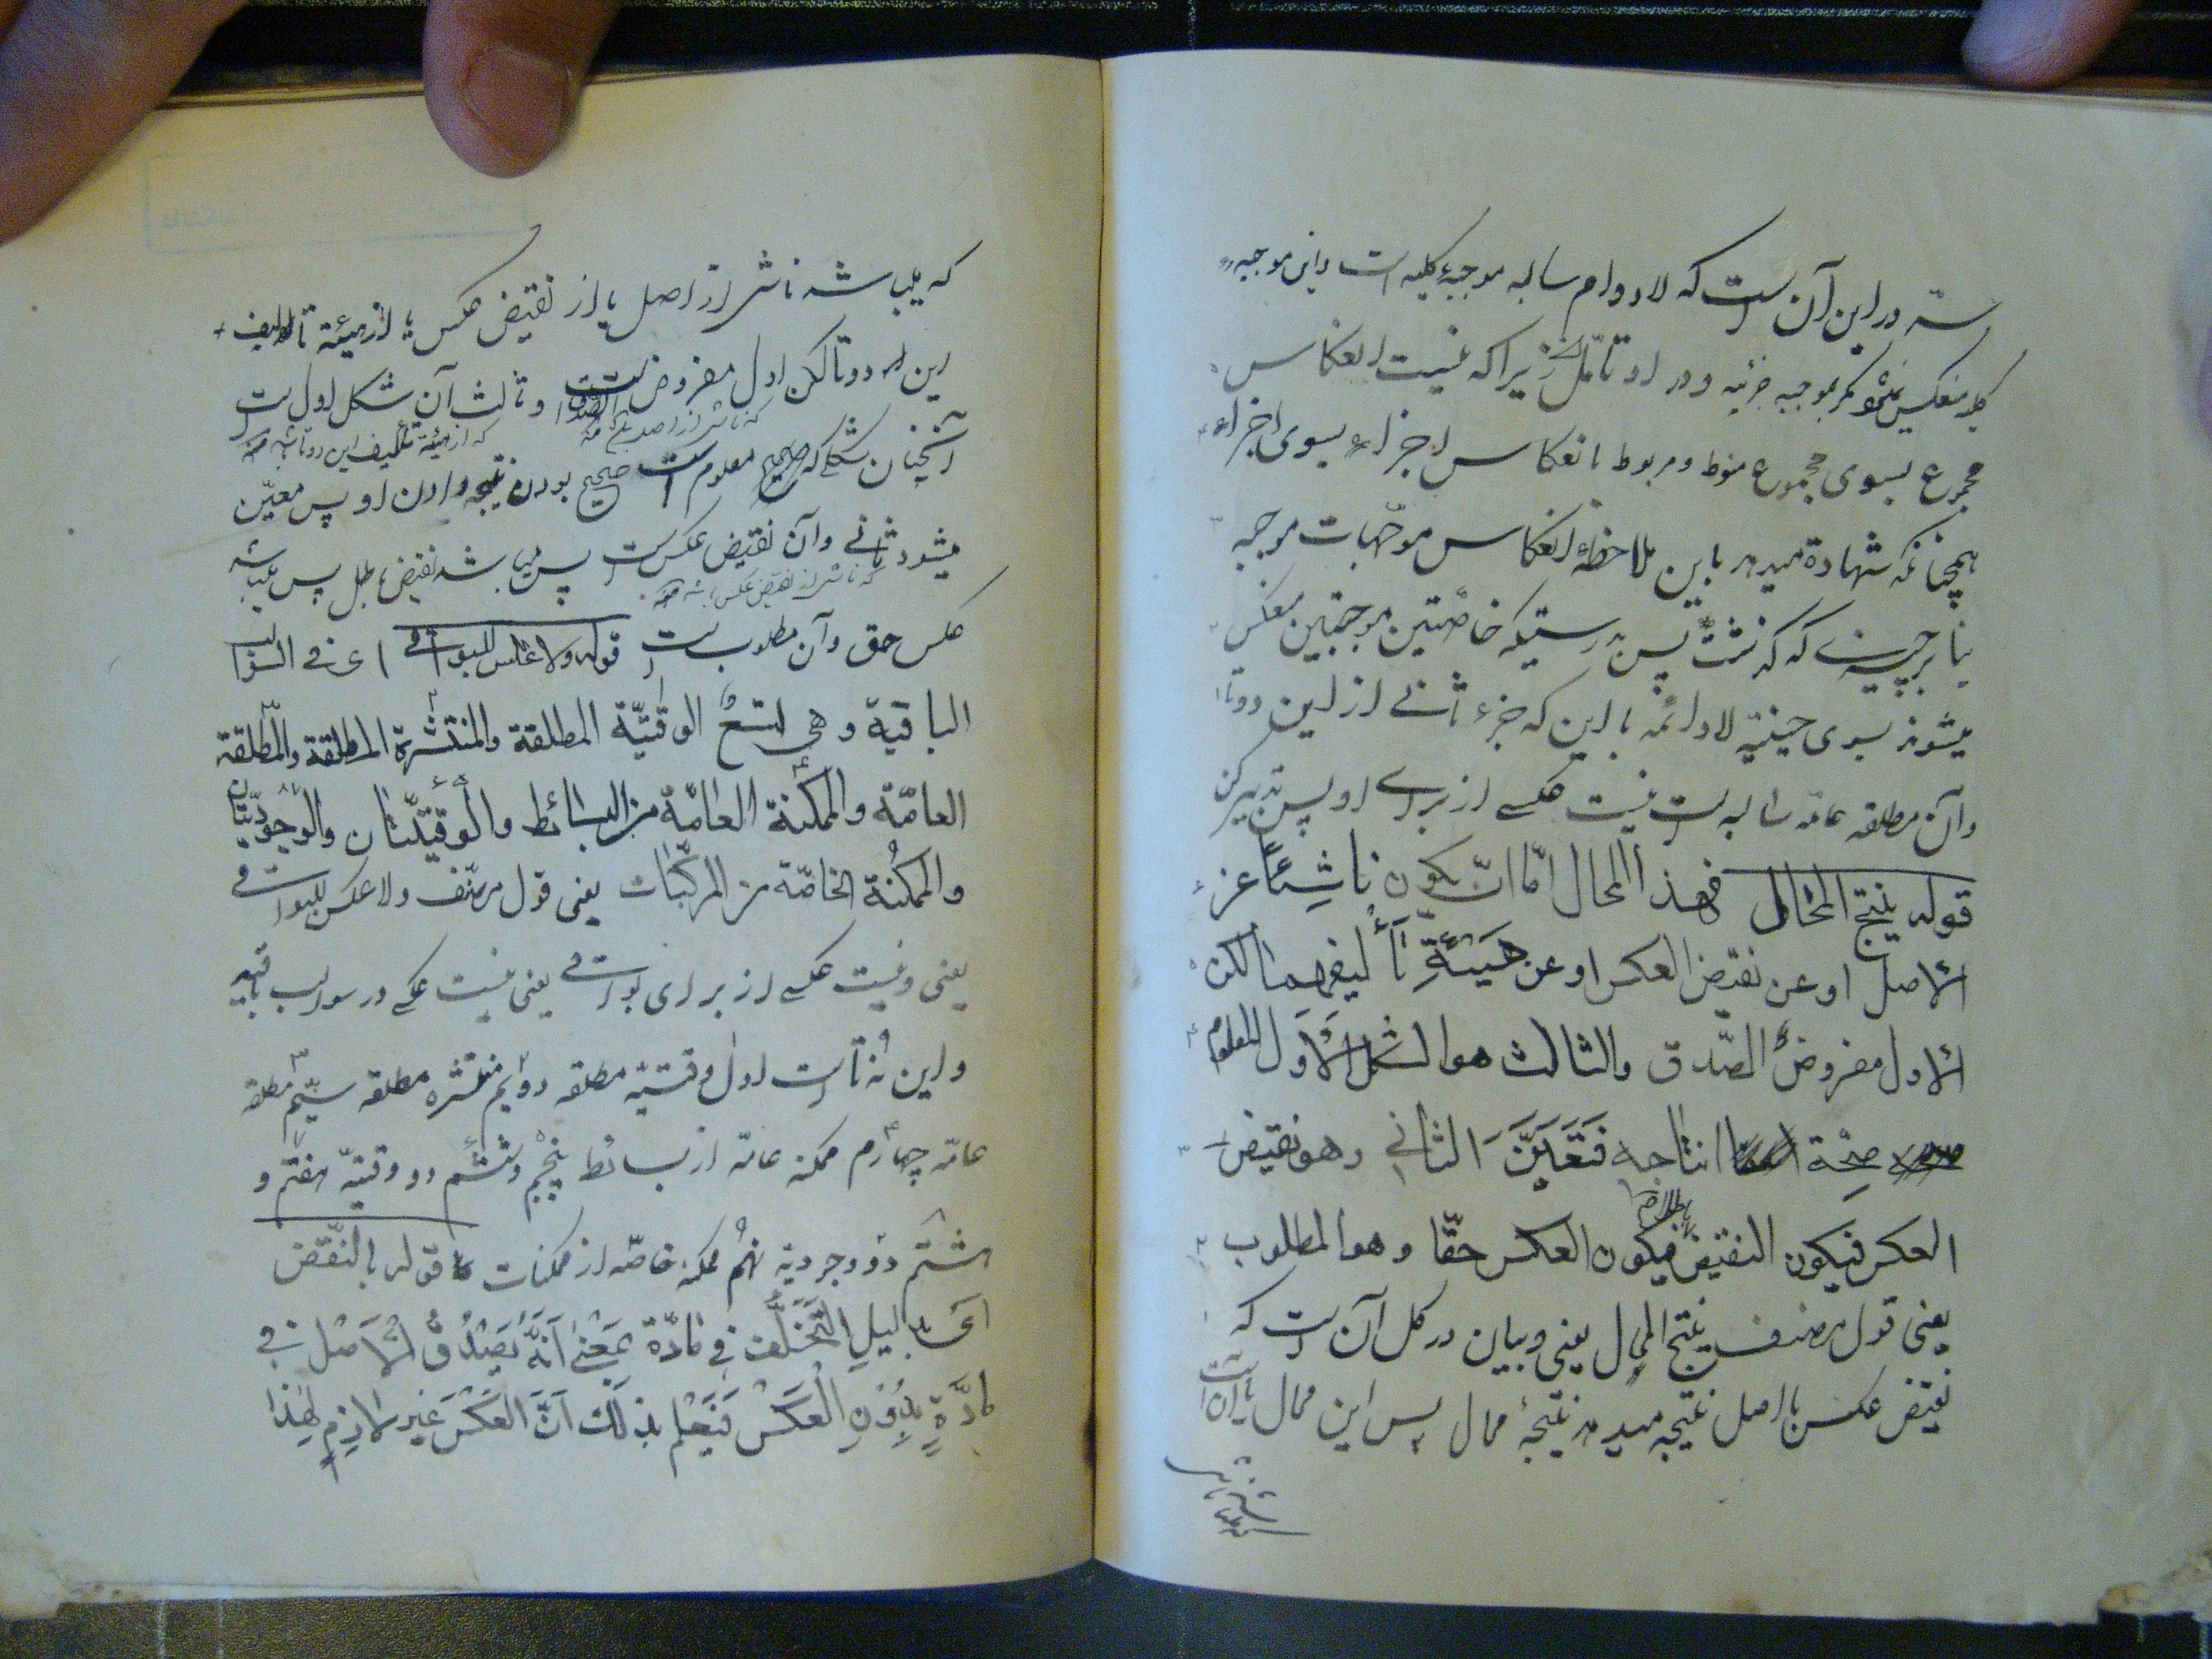 ـست و در این آن است که لا دوام سالبه موجبهٔ کلیه است و این موجبهٔ
کلیه منعکس نمیشود مگر بموجبه جزئیه و در او تأمّل است زیرا که نیست انعکاس
مجموع بسوی مجموع منوط و مربوط بانعکاس اجزاء بسوی اجزاء
همچنانکه شهادة میدهد باین ملاحظهٔ انعکاس موجّهات موجبه
بنابر چیزی که گذشت پس بدرستیکه خاصّتین موجبتین منعکس
میشوند بسوی حینیّه لا دائمه با این که جزء ثانی از این دوتا
و آن مطلقه عامّه سالبه است نیست عکسی از برای او پس تدبر کن
قوله ینتج المحال فهذا المحال امّا ان یکون ناشئاً عن
الاصل او عن نقیض العکس او عن هیئةِ تألیفهما لکن
الاول مفروض الصّدق والثالث هو الشکل الاوّل المعلوم
صحّة انتاجه فتعیّن الثانی وهو نقیض
العکس فیکون النقیض باطلا فیکون العکس حقّا وهو المطلوب
یعنی قول مصنف ینتج المحال یعنی و بیان در کل آن است که
نقیض عکس با اصل نتیجه میدهد نتیجهٔ محال پس این محال یا آن است
که میباشد ناشی از اصل یا از نقیض عکس یا از هیئة تألیف
این دوتا لکن اول مفروض الصّدق است و ثالث آن شکل اول است
که ناشی از اصل باشد منه
که از هیئة تألیف این دوتا باشد منه
آنچنان شکلی که صحیح معلوم است صحیح بودن نتیجه دادن او پس معیّن
میشود ثانی و آن نقیض عکس است پس میباشد نقیض باطل پس میباشد
که ناشی از نقیض عکس باشد منه
عکس حق و آن مطلوب است قوله ولا عکس للبواقی ای فی السوالب
الباقیة وهی تسع الوقتیّة المطلقة والمنتشرة المطلقة والمطلقة
العامّة والممکنة العامّة من البسائط والوقتیّتان والوجودیّتان
والممکنة الخاصّة من المرکّبات یعنی قول مصنّف ولا عکس للبواقی
یعنی و نیست عکسی از برای بواقی یعنی نیست عکسی در سوالب باقیه
و این نُه تا است اول وقتیّه مطلقه دوّیم منتشره مطلقه سیّم مطلقه
عامّه چهارم ممکنه عامّه از بسائط پنجم و ششم دو وقتیّه هفتم و
هشتم دو وجودیه نهم ممکنه خاصّه از ممکنات قوله بالنّقض
ای بدلیل التخلّف فی مادّة بمعنی انّه یصدق الاصل فی
مادّةٍ بدون العکس فیعلم بذلک انّ العکس غیر لازمٍ لهذا